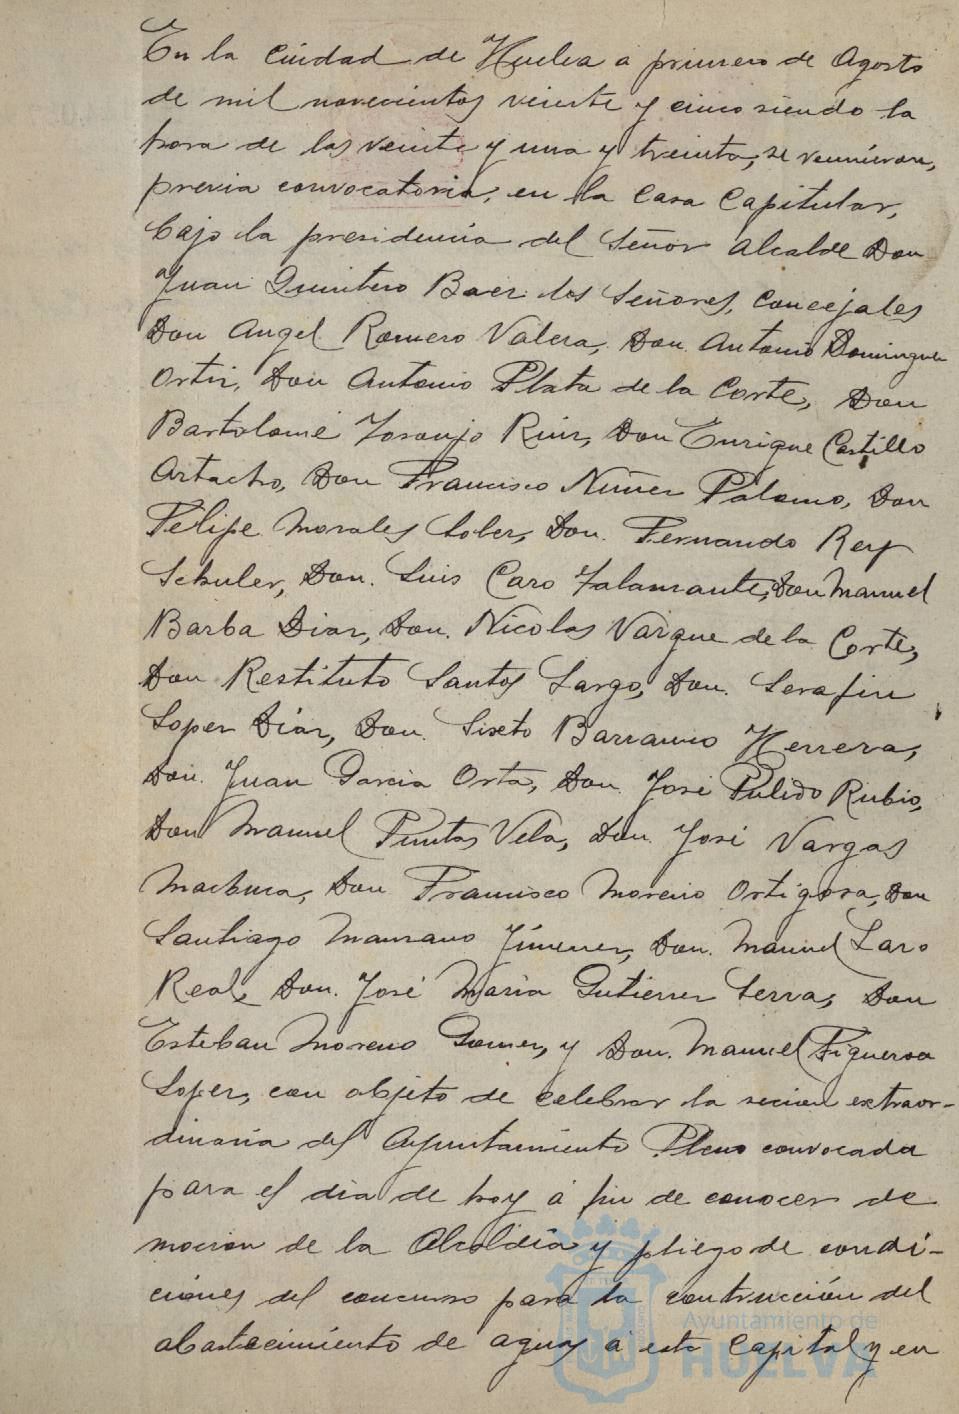 En la Ciudad de Huelva a primero de Agosto
de mil novecientos veinte y cinco siendo la
hora de las veinte y una y treinta, se reunieron,
previa convocatoria, en la Casa Capitular,
bajo la presidencia del Señor Alcalde Don
Juan Quintero Baez los Señores, Concejales
Don Angel Romero Valera, Don Antonio Dominguez
Ortiz, Don Antonio Plata de la Corte, Don
Bartolomé Toronjo Ruiz, Don Enrique Castillo
Artacho, Don Francisco Núñez Palomo, Don
Felipe Morales Soler, Don Fernando Rey
Schuler, Don Luis Caro Talamante, Don Manuel
Barba Diaz, Don Nicolas Vazque de la Corte,
Don Restituto Santos Largo, Don Serafin
Lopez Díaz, Don Sixto Barranco Herrera,
Don Juan Garcia Orta, Don José Pulido Rubio,
Don Manuel Puntas Vela, Don José Vargas
Machuca, Don Francisco Moreno Ortigosa, Don
Santiago Manzano Jímenez, Don Manuel Lazo
Real, Don José Maria Gutierrez Serra, Don
Esteban Moreno Gomez, y Don Manuel Figueroa
Lopez, con objeto de celebrar la secion extraor-
dinaria del Ayuntamiento Pleno convocada
para el dia de hoy á fin de conocer de
mocion de la Alcaldía y pliego de condi-
ciones del concurso para la contrucción del
abastecimiento de aguas a esta Capital y en
Ayuntamiento de
HUELVA